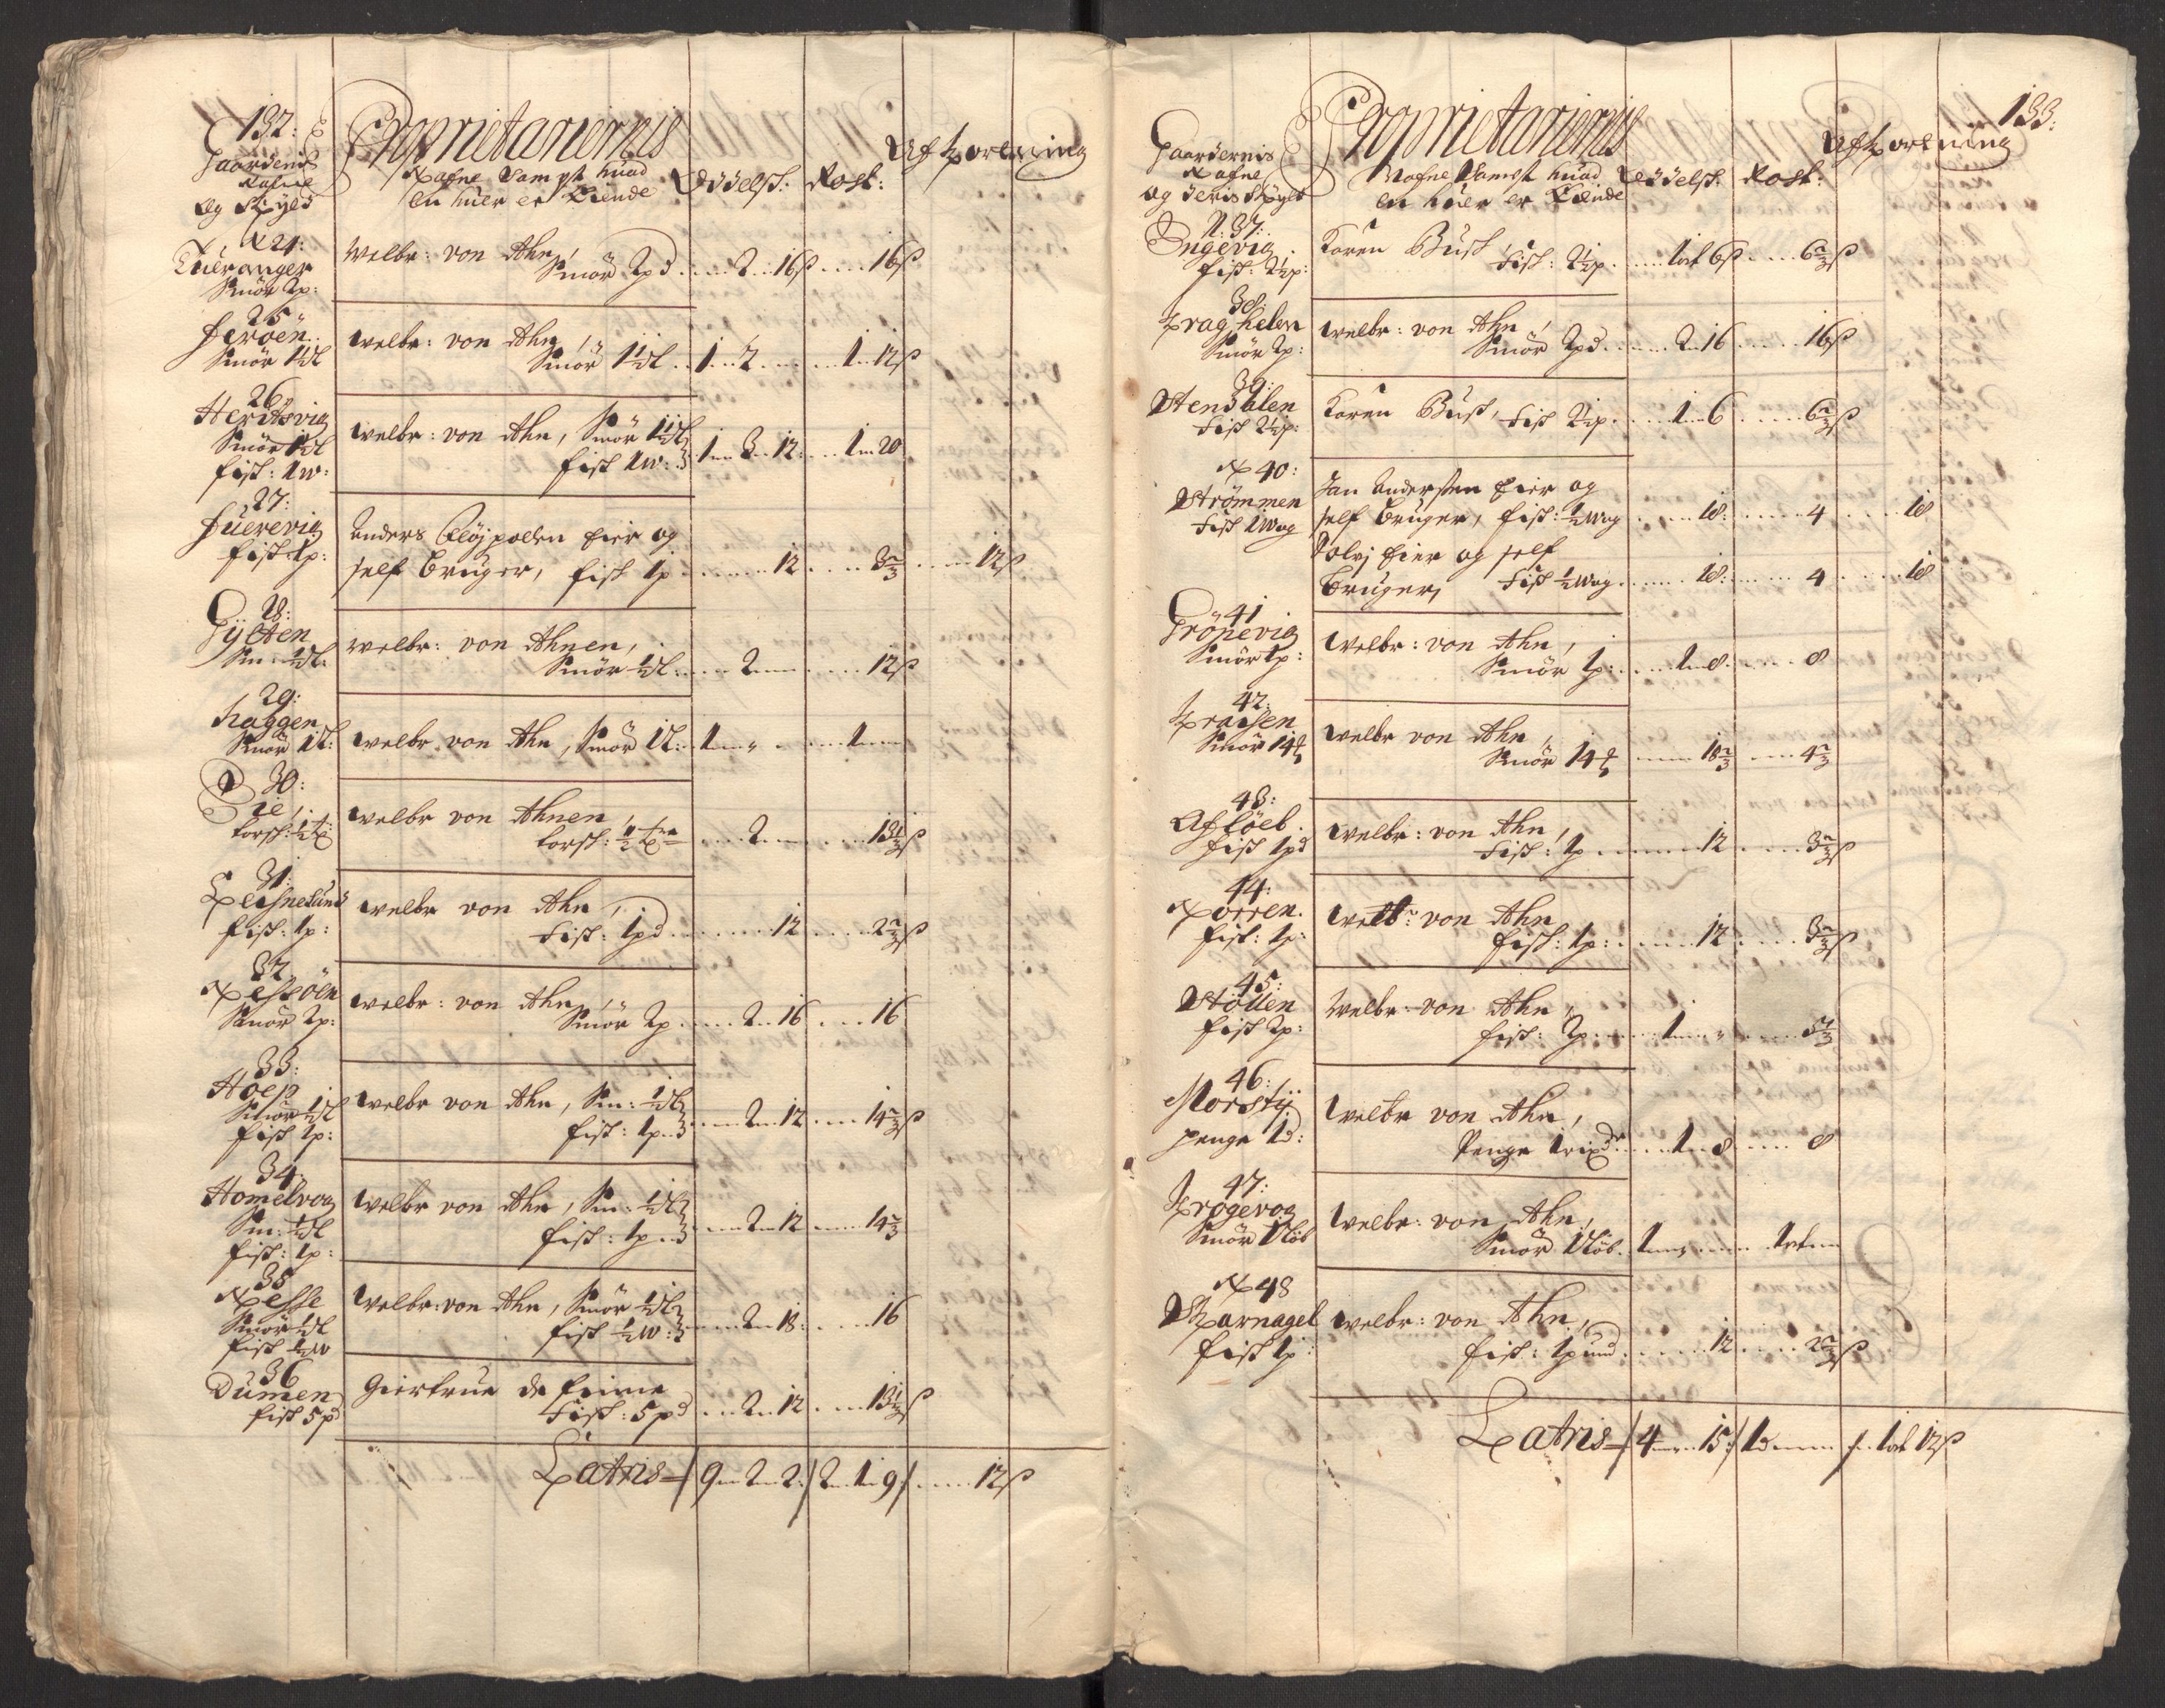 132:
Gaardenis
Nafne
og Skyld
Proprietariernis
Nafne samt huad
en huer er Eiende
Oddelsk:
Rost:
Afkortning
N 24:
Tueranger
Smör 2p:
welbr: von Ahn,
Smör 2pd....2..16ß....16ß
25
Jeröen
Smör 1½L
welbr: von Ahn,
Smör 1½L..1..2......1..12ß
26
Herdsvig
Smör 1½L
fisk: 1w:
welbr: von Ahn, Smör 1½L
fisk 1w: 1..3..12:...1..20
27:
Juerevig
fisk 1p:
Anders Fløjpolen Eier og
self bruger, fisk 1p......12....3⅔.....12ß
28:
Gylten
Sm: ½L:
welbr: von Ahnen,
Smör ½L:....2........12ß
29:
Haggen
Smör 1L:
welbr. von Ahn, Smör 1L:..1..."....1...
N 30:
Öie,
torsk: ½t
welbr von Ahnen,
torsk: ½ t....2........13⅓ß
31:
Leisnesund
fisk: 1p:
welbr von Ahn,
fisk: 1pd......12....2⅔ß
32
Nessöen
Smör 2p:
welbr: von Ahn,
Smör 2p....2..16....16
33:
Hope
Smör ½L
fisk 1p:
welbr von Ahn, Sm: ½L
fisk: 1p..2..12....14⅔ß
34
Homelvog
Sm: ½L
fisk: 1p:
welbr von Ahn, Sm: ½L
fisk: 1p..2..12....14⅔
35
Nesse
Smör ½L
fisk ½w
welbr: von Ahn, Smör ½L
fisk ½w:..2..18:....16
36
Dumen
fisk 5pd
Giertrue de feine
fisk: 5pd...2..12....13⅓ß
Latris 9..2..2:/2..1..9/......12ß
133:
Gaardernis
Nafne
og deris Skyld
Proprietariernis
Nafne samt huad
en huer er Eiende
Oddelsk:
Rost:
Afkortning
N: 37:
Ingevig
fisk: 2½p:
Karen Busk
fisk: 2½p.....1ort 6ß....6⅔ß
38:
Kraghelen
Smör 2p:
welbr: von Ahn,
Smör 2pd......2..16.....16ß
39:
Stensalen
fisk 2½p:
Karen Busk, fisk 2½p.....1..6....6⅔ß
N 40:
Strömmen
fisk 1Wog
Jan Andersen Eier og
self bruger, fisk: ½Wog....18:.....4.....18
Solvj Eier og self
bruger, fisk ½Wog......18:.....4.....18
41
Grönevig
Smör 1p:
Welbr: von Ahn,
Smör 1p:....1..8.....8
42:
Smör 14
welbr von Ahn,
Smör 14.....18⅔....4⅔
43:
Aflöeb
fisk 1pd
welbr: von Ahn,
fisk: 1p.......12....3⅔ß
44:
Norren.
fisk: 1p:
welbr: von Ahn,
fisk: 1p:.....12....3⅔ß
45:
Stöllen
fisk 2p:
Welbr: von Ahn,
fisk: 2p:.....1..."....5⅓
46:
Morsty
penge 1d:
welbr von Ahn,
Penge 1rixdr....1..8.....8
47:
Krogevog
Smör 1Löb
welbr: von Ahn,
Smör 1Löb. 1..."......1ort...
N 48
Skarnagel
fisk 1p:
welbr: von Ahn,
fisk: 1pund......12.....2⅔ß
Latris 4....15:/1d....../..1ort 12ß